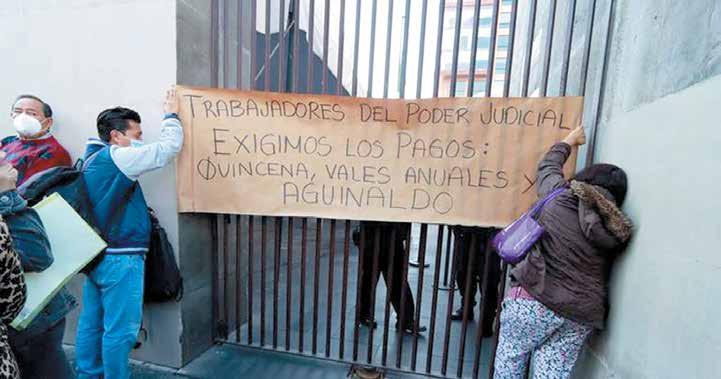 TRABAJADORES DEL PODER JUDICIAL
EXIGIMOS LOS PAGOS:
QUINCENA, VALES ANUALES Y
AGUINALDO